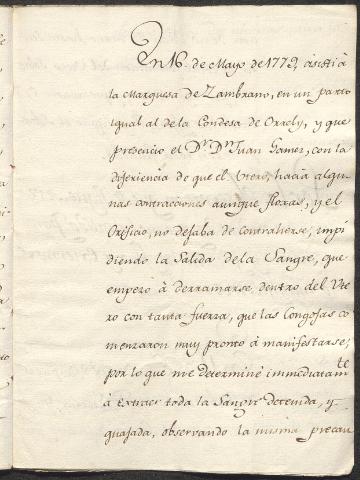 En 16. de Mayo de 1779, asisti à
la Marquesa de Zambrano, en un parto
igual al de la Condesa de Orrely, y que
presencio el D.r D.n Juan Gamez, con la
diferiencia de que el Utero, hacia algu-
nas contracciones aunque floxas, y el
Orificio, no dejaba de contraherse, impi
diendo la Salida de la Sangre, que
empezo à derramarse dentro del Ute
ro con tanta fuerza, que las Congojas co
menzaron muy pronto à manifestarse;
por lo que me determiné immediatam.te
à Extraer toda la Sangre detenida, y
quajada, observando la misma precau